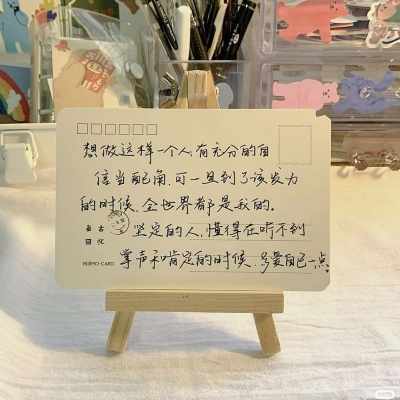 想做这样一个人,有充分的自
信当配角,可一旦到了该发力
的时候,全世界都是我的。
坚定的人,懂得在听不到
掌声和肯定的时候,多爱自己一点
回忆